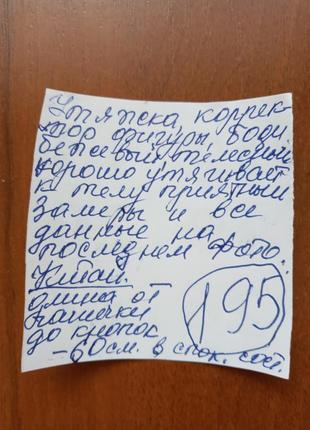 Утяжка коррек-
тор фигуры, боди
бежевый телесный
хорошо утягивает
к телу приятный
Замеры и все
данные на
последнем фото.
Китай.
длина от
чашечки
до кнопок
-60см. в спок. сост.
195